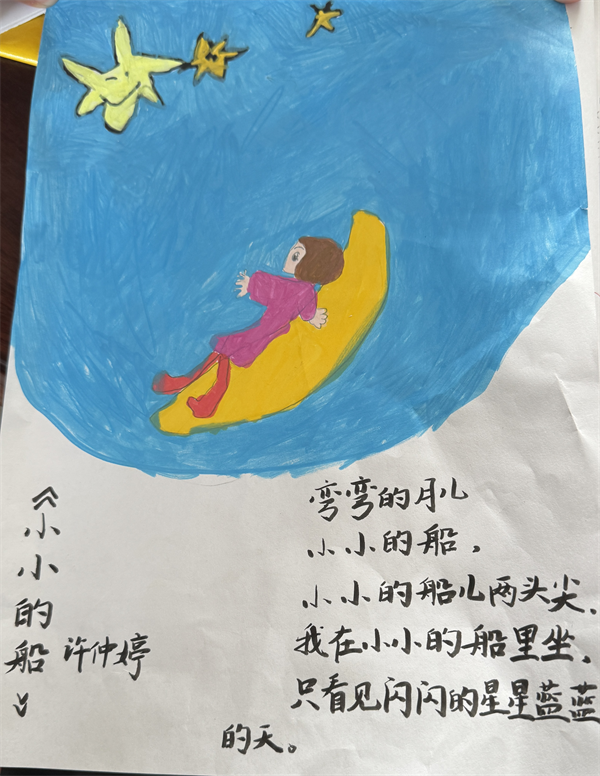 《小小的船》
许仲婷
弯弯的月儿
小小的船,
小小的船儿两头尖.
我在小小的船里坐.
只看见闪闪的星星蓝蓝
的天。